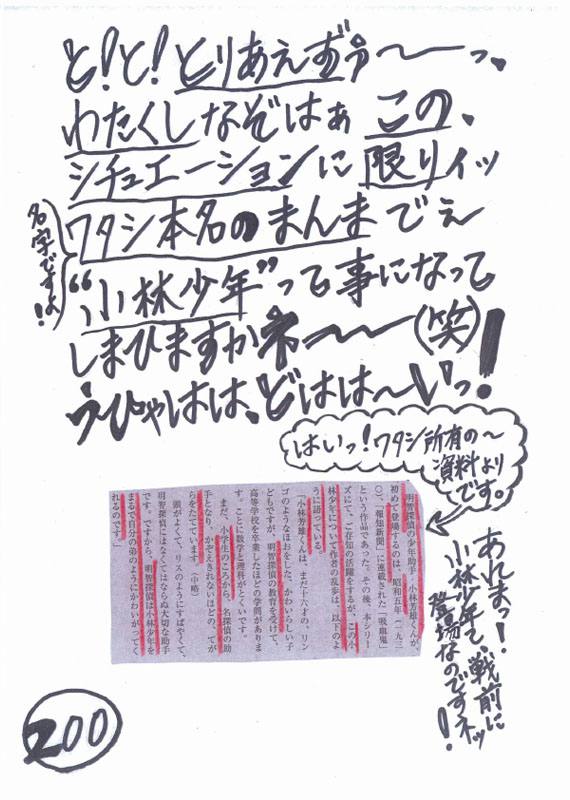 と!と!とりあえずぅ〜ーっ、
わたくしなぞはぁ この、
シチュエーションに 限りィッ
ワタシ本名のまんまでぇ
名字ですよ!
“小林少年”って事になって
しまひますかネ〜〜(笑)!
うひゃはは、どはは〜いっ!
はいっ!ワタシ所有の〜
資料より
です。
明智探偵の少年助手 小林芳雄くんが、
初めて登場するのは、昭和五年(一九三
〇)、「報知新聞」に連載された「吸血鬼」
という作品であった。その後、本シリー
ズにて、ご存知の活躍をするが、この小
林少年について作者の乱歩は、以下のよ
うに語っている。
「小林芳雄くんは、まだ十六才の、リン
ゴのようなほおをした、かわいらしい子
どもですが、明智探偵の教育を受けて、
高等学校を卒業したほどの学問がありま
す。ことに数学と理科がとくいです。
まだ、小学生のころから、名探偵の助
手となり、かぞえきれないほどの、てが
らをたてています。(中略)
頭がよくて、リスのようにすばやくて、
明智探偵にはなくてはならぬ大切な助手
です。ですから、明智探偵は小林少年を
まるで自分の弟のようにかわいがってく
れるのです。」
あれまっ!
小林少年て、戦前に
登場なのですネッ!
200